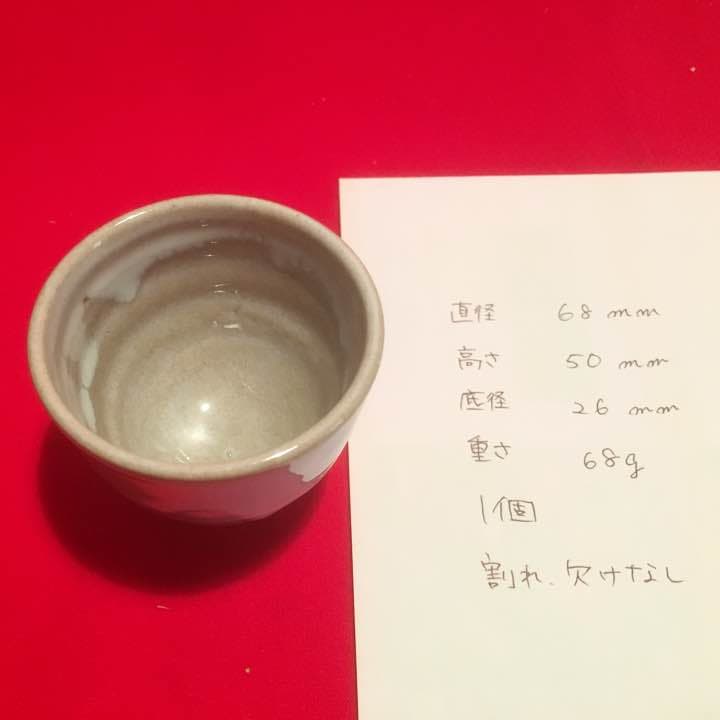 直径 68 mm
高さ 50 mm
底径 26 mm
重さ 68g
1個
割れ、欠けなし